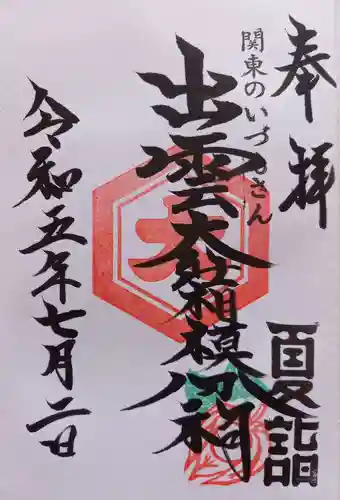 奉拝
夏詣
関東のいづもさん
出雲大社相模分祠
令和五年七月二日
大